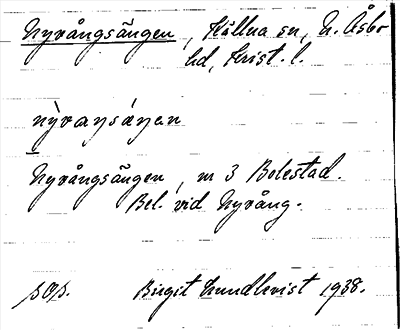 Nyvångsängen, Källna sn, N. Åsbo
hd, Krist. l.
nỳvaŋsáŋan
Nyvångsängen, m 3 Bolestad.
Bel. vid Nyvång.
Birgit Lundkvist 1938.